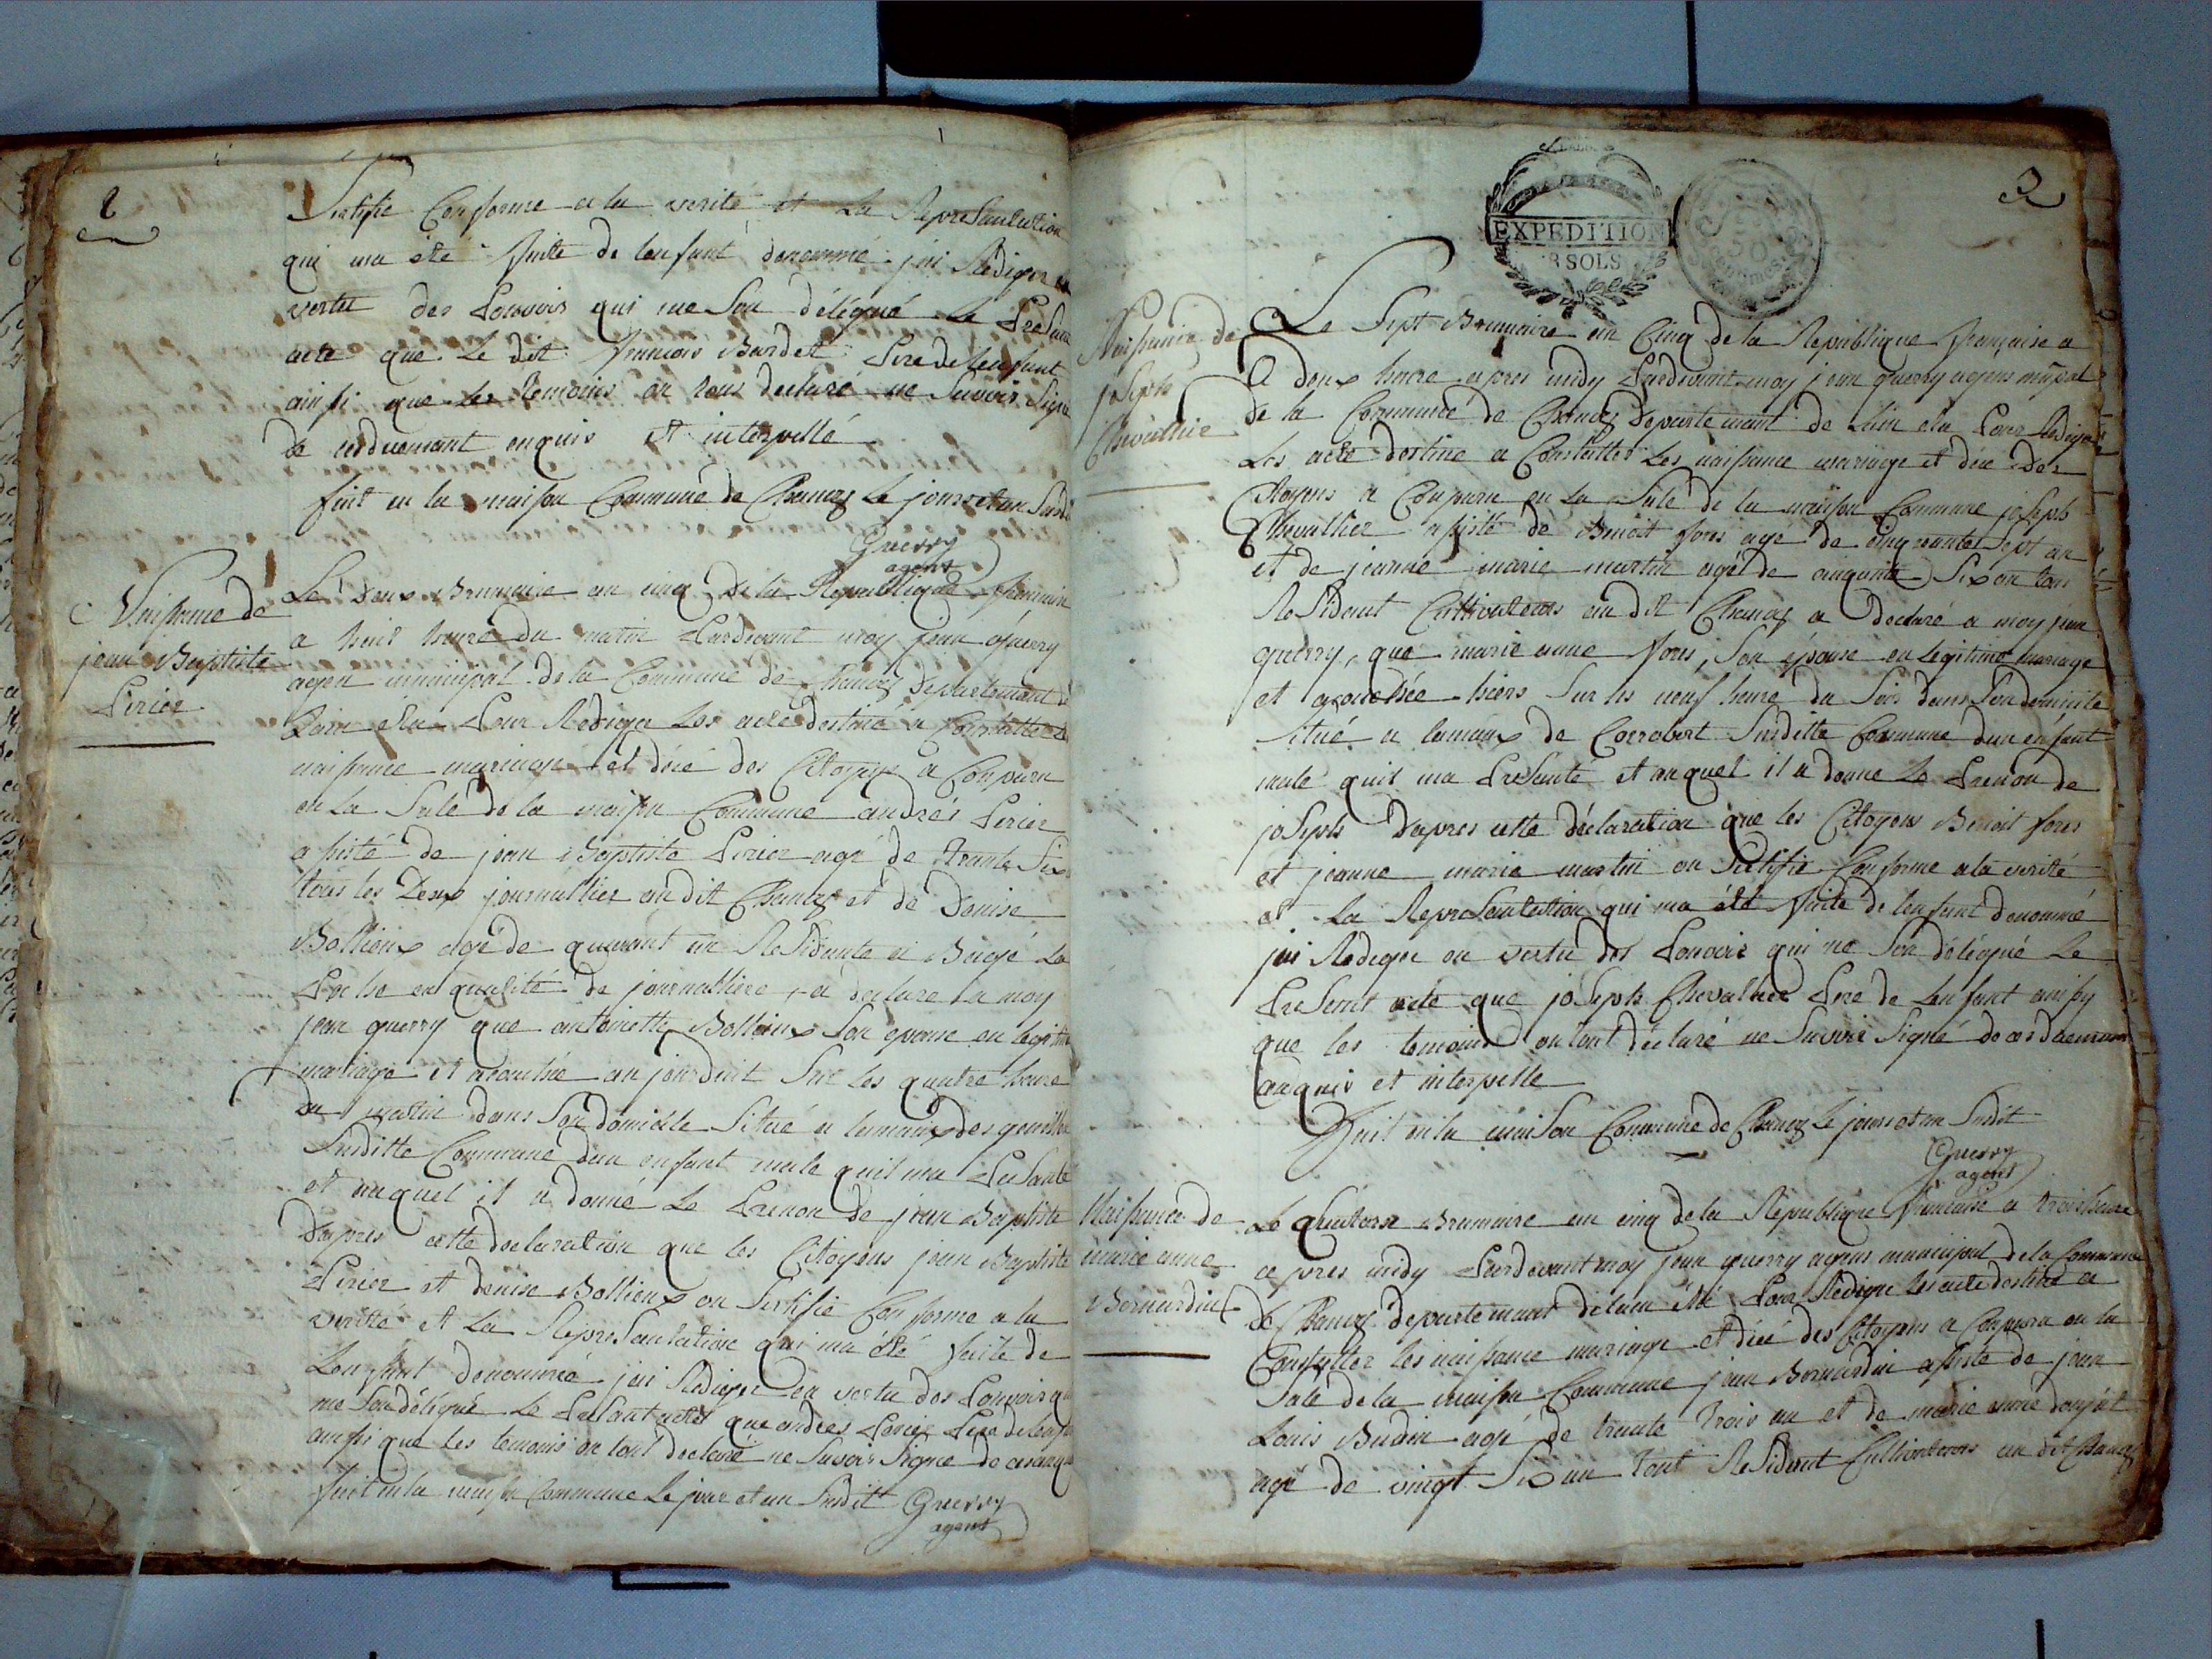 2
Sertifie Conforme a la verité et La Representation
qui ma été faite de lenfant denommé jai Rediger en
vertu des Pouvoirs qui me Son délégué Le Present
acte que Le dit francois Bardet Pere de lenfant
ainsi que Les temoins on tous declaré ne Savoir Signé
de ce duemant enquis et interpellé
fait en la maison Commune de Chanoz Le jours et an Susdit
Guerry
agent
Naissance de
jean Baptiste
Perier
Le Deux Brumaire an cinq De la Republique francaise
a huit heure du matin Pardevant moy jean querry
agent municipal de la Commune de Chanoz Departemant de
Lain elu Pour Rediger Les acte destine a Constatter Les
naissance mariage et décé des Citoyens a Conparu
en La Sale de la maison Commune andrés Perier
assisté de jean Baptiste Perier agé de trante Six
tous les Deux journallier au dit Chanoz et de Denise
Bollieux agé de quarant un Residante a Baagé La
en qualité de journalliere, a declare a moy
jean querry que antoinette Bollieux Son epouse en legitime
mariage et acouchée aujourduit Sur les quatre heure
du matin dans Son domicille Situé a lamaux des
Susditte Commune dun enfant male quil ma Presanté
et auquel il a donné Le Prenon de jean Baptiste
Dapres cette declaration que les Citoyens jean Baptiste
Perier et denise Bollieux on Sertifié Conforme a la
verité et La Representation qui ma été faite de
Lenfant denommé jai Rediger en vertu des Pouvoir qui
me Son délégué Le Presant acte que andrés Perier Pere de lenfant
ainsi que Les temoins on tout declaré ne Savoir Signe de ce enquis
fait en la maison Commune Le jour et an Susdit
Guerry
agent
3
EXPEDITION
8 SOLS
50
centimes
Naissance de
joseph
Chevallier
Le Sept Brumaire an Cinq de la Republique française a
a deux heure apres midy Pardevant moy jean querry agent mupal
de la Commune de Chanoz Departemant de Lain elu Pour Rediger
Les acte destine a Constatter Les naissance mariage et déce des
Citoyens a Conparu en La Sale de la maison Commune joseph
Chevallier assisté de Benoit fores agé de cinquante Sept an
et de jeanne marie martin agé de cinquante Six an tous
Resident Cultivateurs au dit Chanoz a Declaré a moy jean
querry, que marie anne fores, Son épouse en legitime mariage
et acouchée hiers Sur les neuf heure du Soir dans Son domicile
Situé a lamaux de Corrobert Susditte Commune dun enfant
male quil ma Presanté et auquel il a donne Le Prenon de
joseph Dapres cette declaration que les Citoyens Benoit fores
et jeanne marie martin on Sertifie Conforme a la verité
et La Representation qui ma été faite de lenfant denommé
jai Rediger en vertu des Pouvoir qui me Son délégué Le
Presant acte que joseph Chevallier Pere de Lenfant ainsy
que les temoins on tout déclaré ne Savoir Signé de ce duemant
enquis et interpelle
Fait en la maison Commune de Chanoz Le jours et an Susdit
Guerry
agent
Naissance de
marie anne
Bernardin
Le Quatorze Brumaire an cinq de la Republique francaise a trois heure
apres midy Pardevant moy jean querry agent municipal de la Commune
De Chanoz departemant de lain élu Pour Rediger les acte destine a
Constatter les naissance mariage et déce des Citoyens a Conparu en la
Sale de la maison Commune jean Bernardin assiste de jean
Louis Budin agé de trante trois an et de marie anne donjat
agé de vingt Six an tout Resident Cultivateurs au dit Chanoz